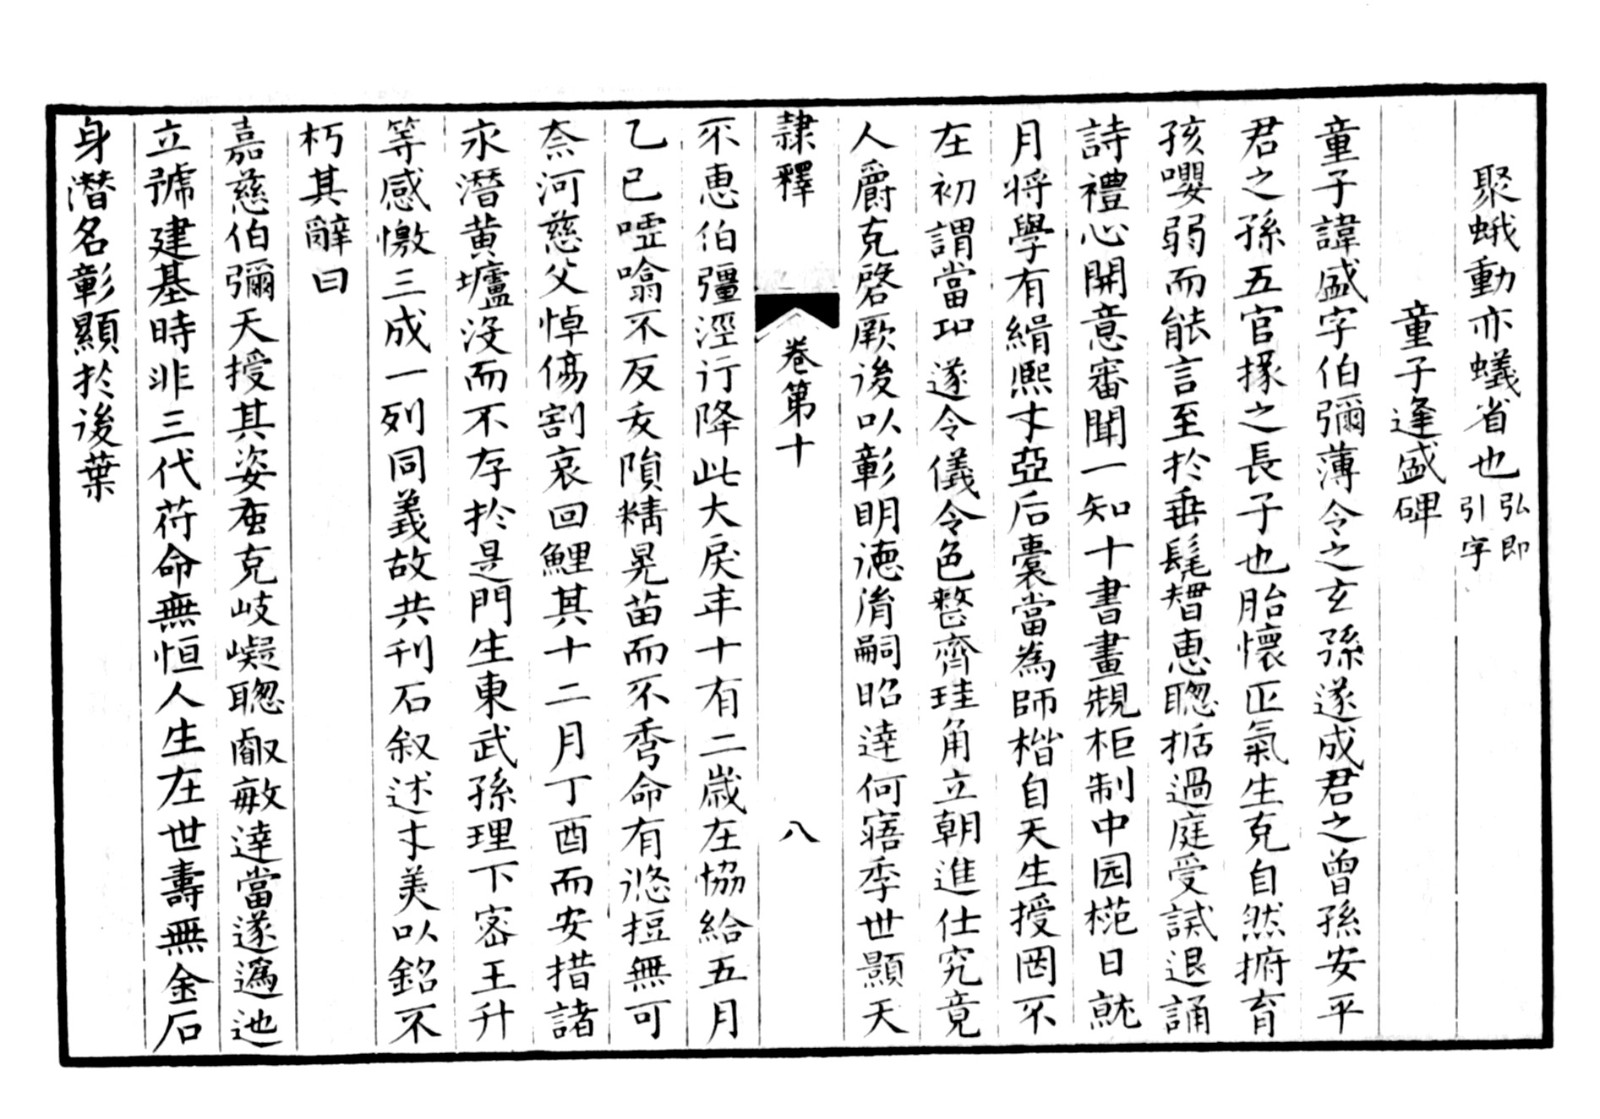 聚蛾動亦蟻省也弘即引字
童子逢盛碑
童子諱盛字伯彌薄令之玄孫遂成君之曾孫安平
君之孫五官掾之長子也胎懷正氣生克自然捬育
孩嬰弱而能言至於垂髦智惠聰括過庭受試退誦
詩禮心開意審聞一知十書畫規柜制中园椛日就
月將學有緝熙才亞后橐當為師楷自天生授罔不
在初謂當邛遂令儀令色整齊珪角立朝進仕究竟
人爵克啓厥後以彰明德淯嗣昭達何寤季世顥天
隸釋
卷第十
八
不惠伯彊涇行降此大戾年十有二歲在協給五月
乙巳嘘噏不反夭隕精晃苗而不秀命有悠短無可
柰河慈父悼傷割哀回鯉其十二月丁酉而安措諸
永潛黃壚沒而不存於是門生東武孫理下密王升
等感憿三成一列同義故共刊石叙述才美以銘不
朽其辭曰
嘉慈伯彌天授其姿蚤克岐嶷聰叡敏達當遂逶迆
立號建基時非三代苻命無恒人生在世壽無金石
身潛名彰顯於後葉